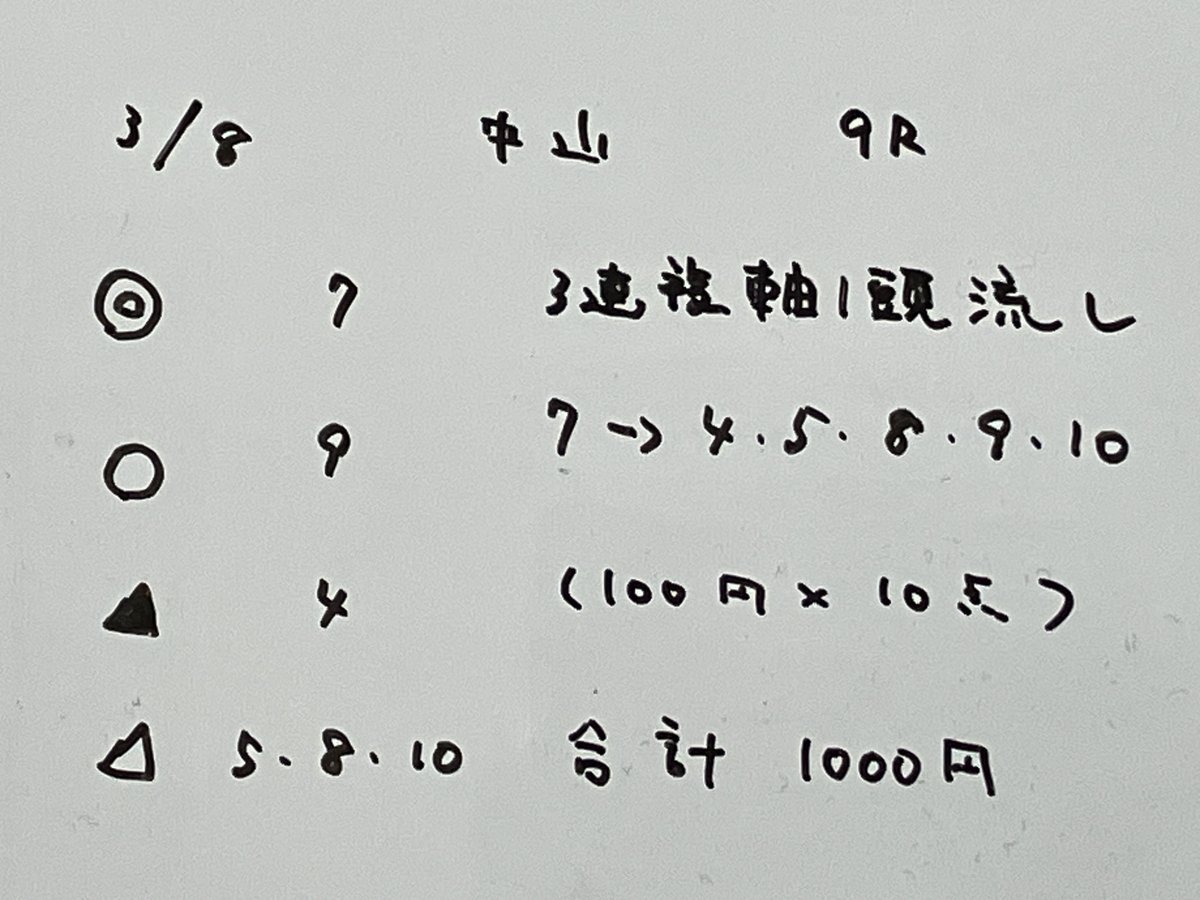 3/8 中山 9R
◎ 7 3連複軸1頭流し
○ 9 7→4.5.8.9.10
▲ 4 (100円×10点)
△ 5.8.10 合計 1000円